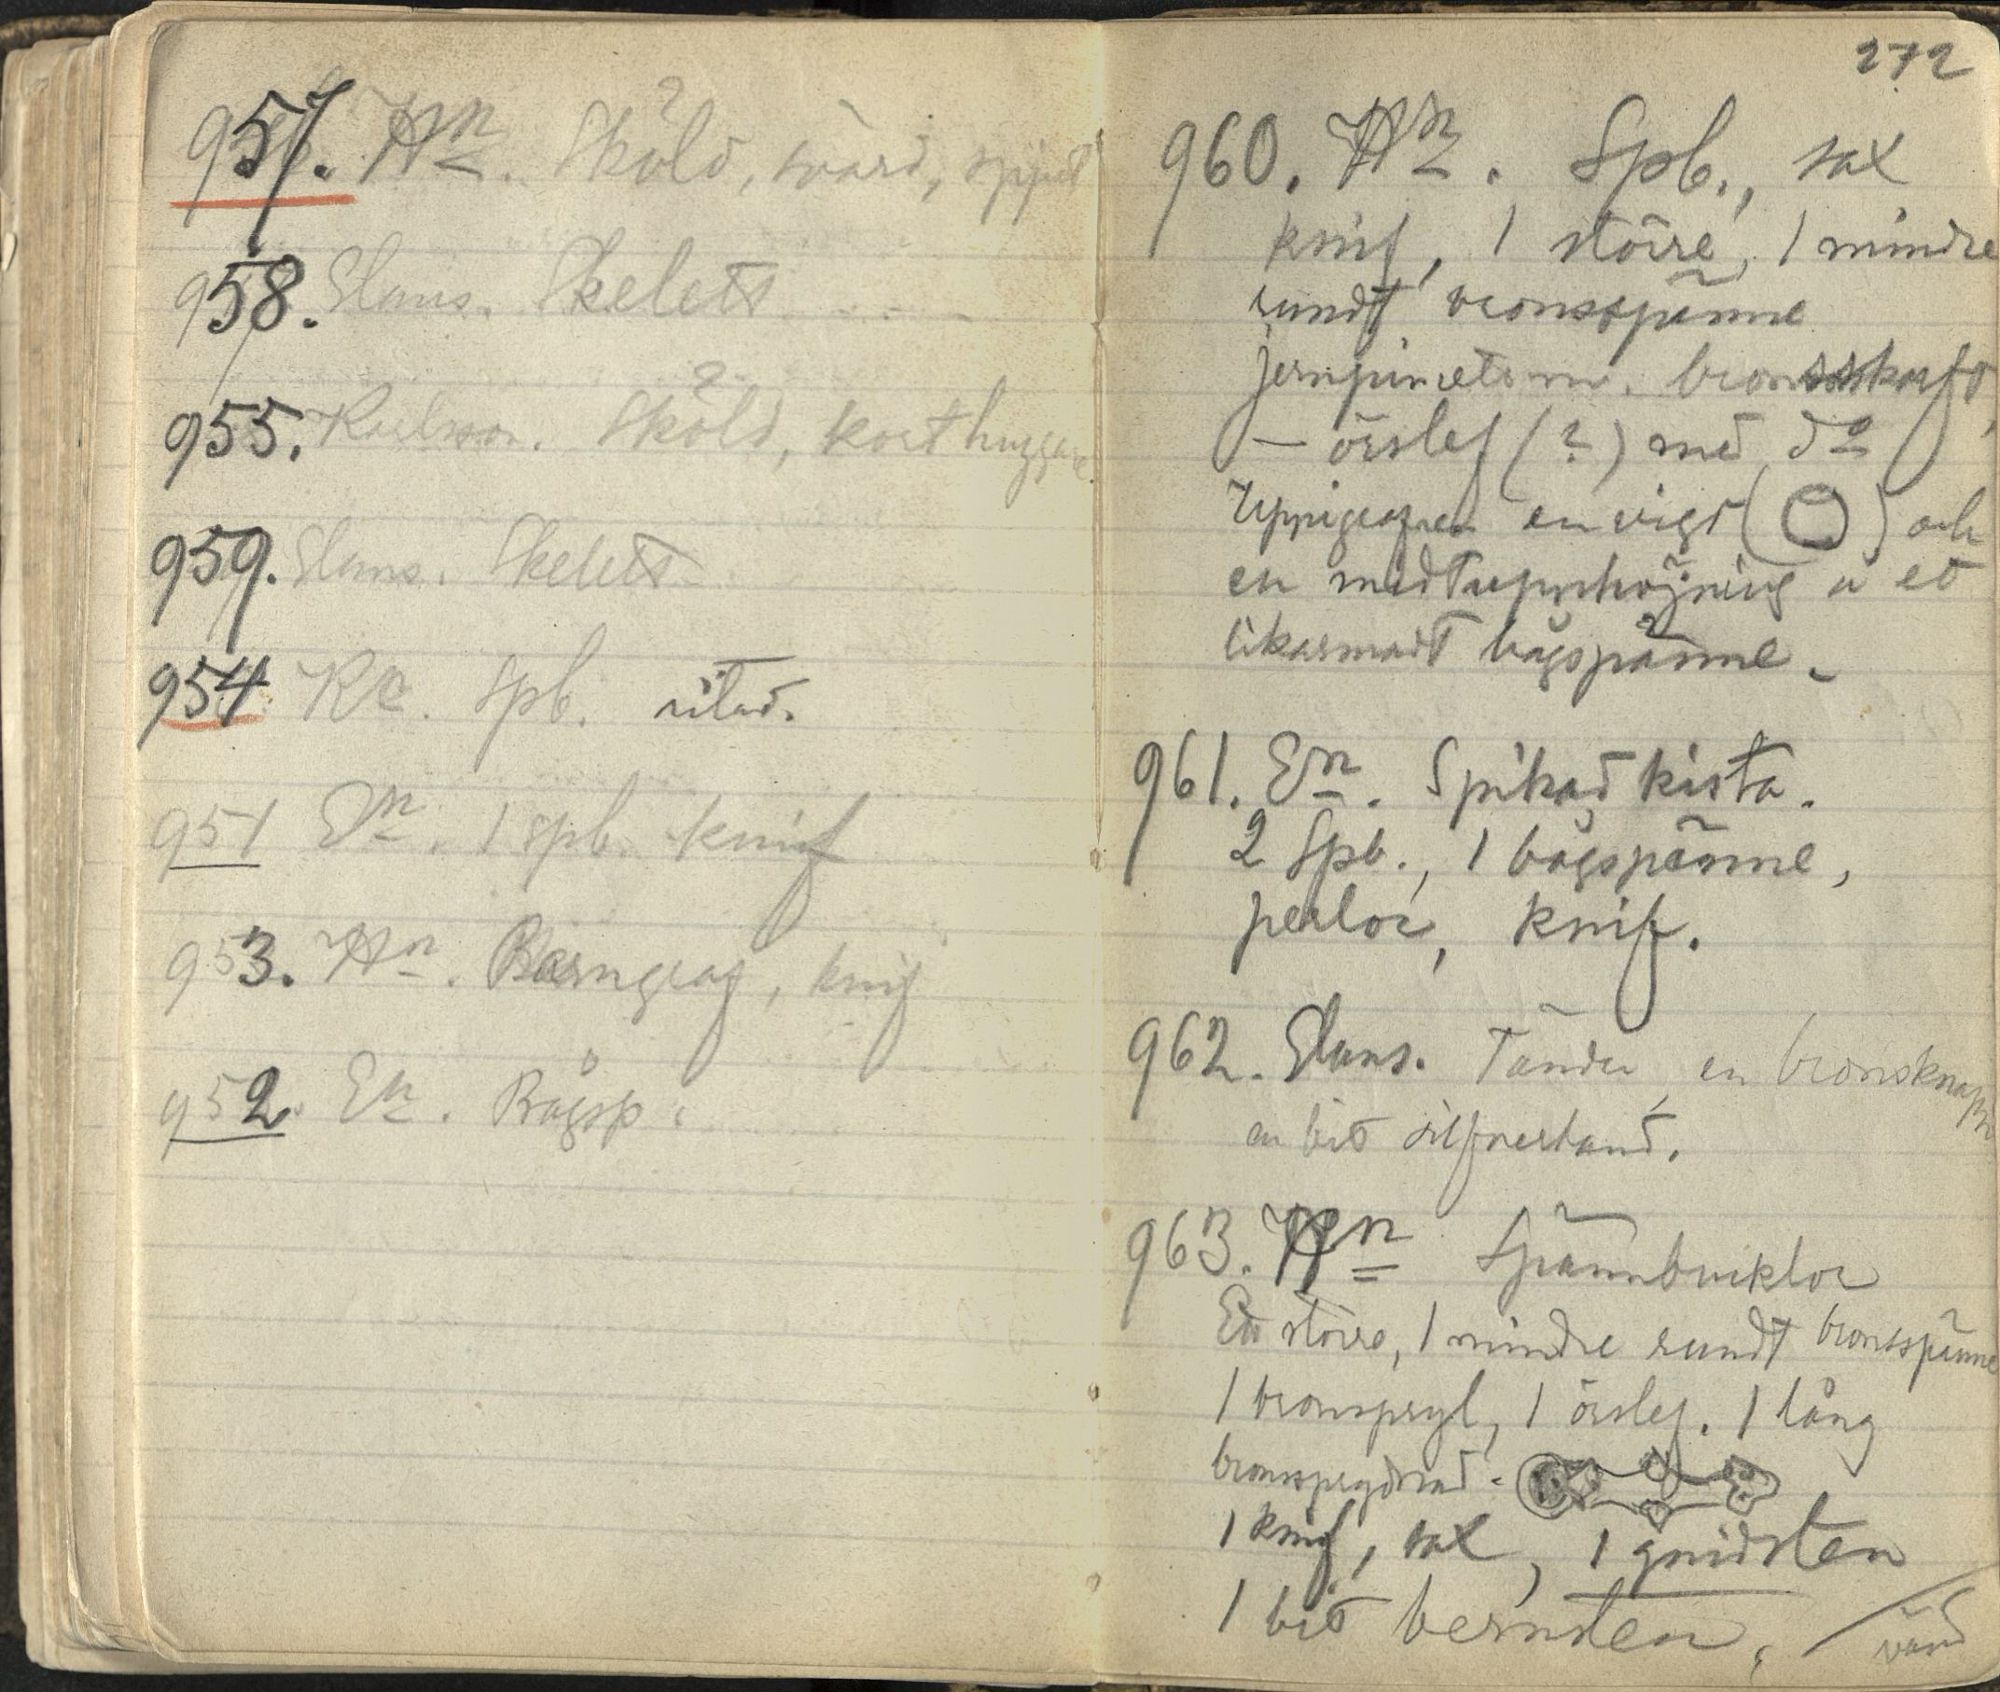 957. Hn. Sköld, svärd, spjut
958. Slans. Skelett
955. Karlsson. Sköld, korthuggare
959. Slans. Skelett
954 Kr. Spb. ritad.
951 En. 1 spb. knif
953. Hn. Barngraf, knif
952. En. Bågsp.
272
960. Hn. Spb., sax
knif, 1 större, 1 mindre
rundt bronsspänne
jernpincett m. bronsskaft,
— örslef (?) med do
en vigt ( ) och
en med upphöjning o et
likarmadt bågspänne.
961. En. Spikad kista.
2 Spb., 1 bågspänne,
perlor, knif.
962. Slans. Tänder, en bronsknapp
en bit silfverband.
963. Hn Spännbucklor
En större, 1 mindre rundt bronsspänne
1 bronspryl, 1 örslef. 1 lång
1 knif, sax, 1 gnidsten
1 bit bernsten,
vänd